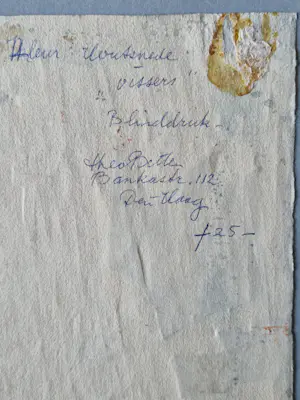 Kleur Houtsnede:
"Vissers"
Blinddruk -
Theo Bitter
Bankastr. 112
Den Haag
f 25 -